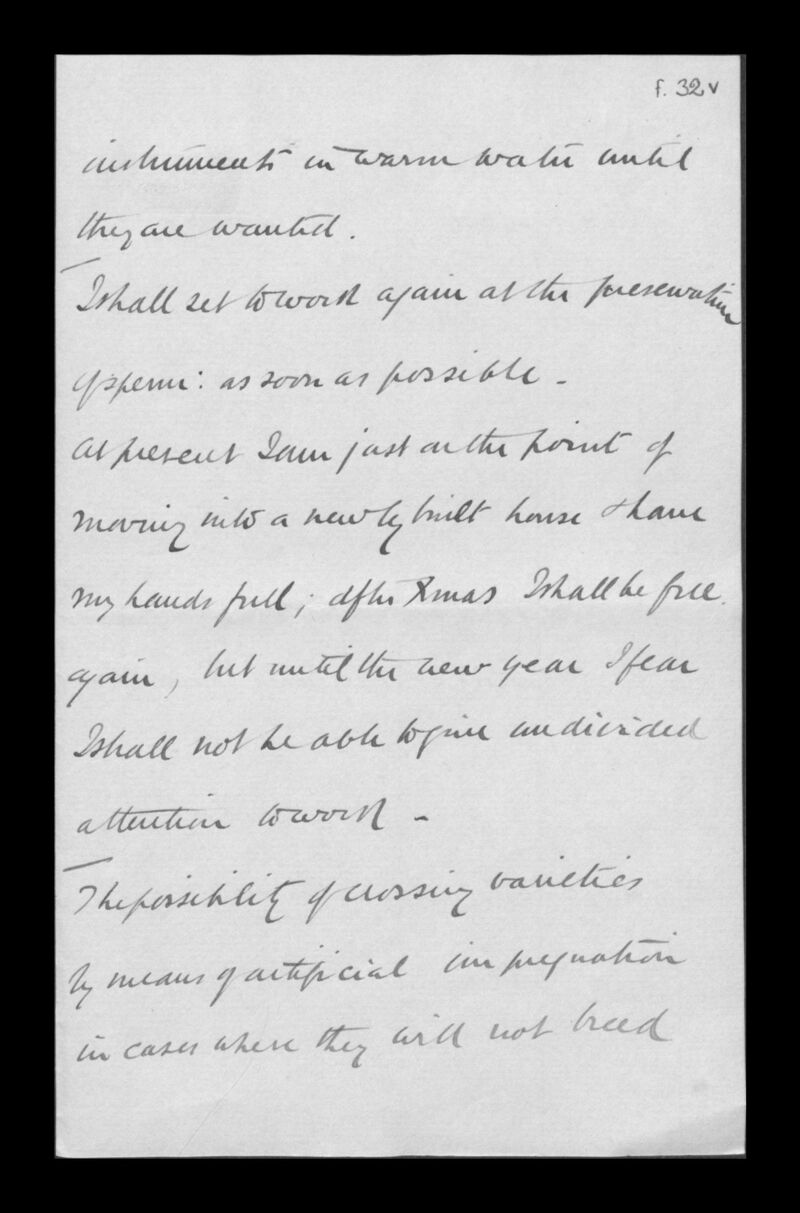 f. 32v
instruments in warm water until
they are wanted.
I shall set to work again at the preservation
of sperm: as soon as possible -
At present I am just on the point of
moving into a newly built house & have
my hands full; after Xmas I shall be free
again, but until the new year I fear
I shall not be able to give undivided
attention to work -
The possibility of crossing varieties
by means of artificial impregnation
in cases where they will not breed